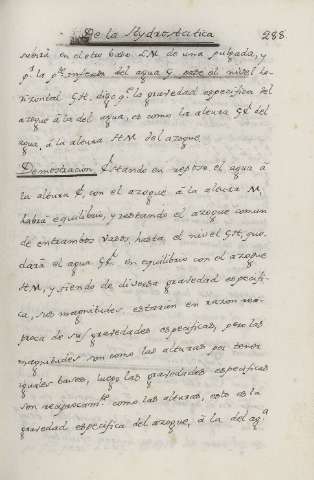 De la Hydrostatica 288
subirà en el otro baso LM de una pulgada, y
pª la pte. superior del agua G pase el nivel ho-
rizontal GH, digo qe. la gravedad especifica del
azogue à la del agua, es como la altura GE del
agua, à la altura HM del azogue.
Demostracion Estando en reposo el agua à
la altura E, con el azogue à la altura M,
habrà equilibrio, y restando el azogue comun
de entrambos vasos, hasta el nivel GH, que
darà el agua GE en equilibrio con el azogue
HM, y siendo de diversa gravedad especifi-
ca, sus magnitudes estaran en razon reci-
proca de sus gravedades especificas, pero las
magnitudes son como las alturas por tener
iguales bases, luego las gravedades especificas
son reciprocamte. como las alturas, esto es la
gravedad especifica del azogue, à la del agª